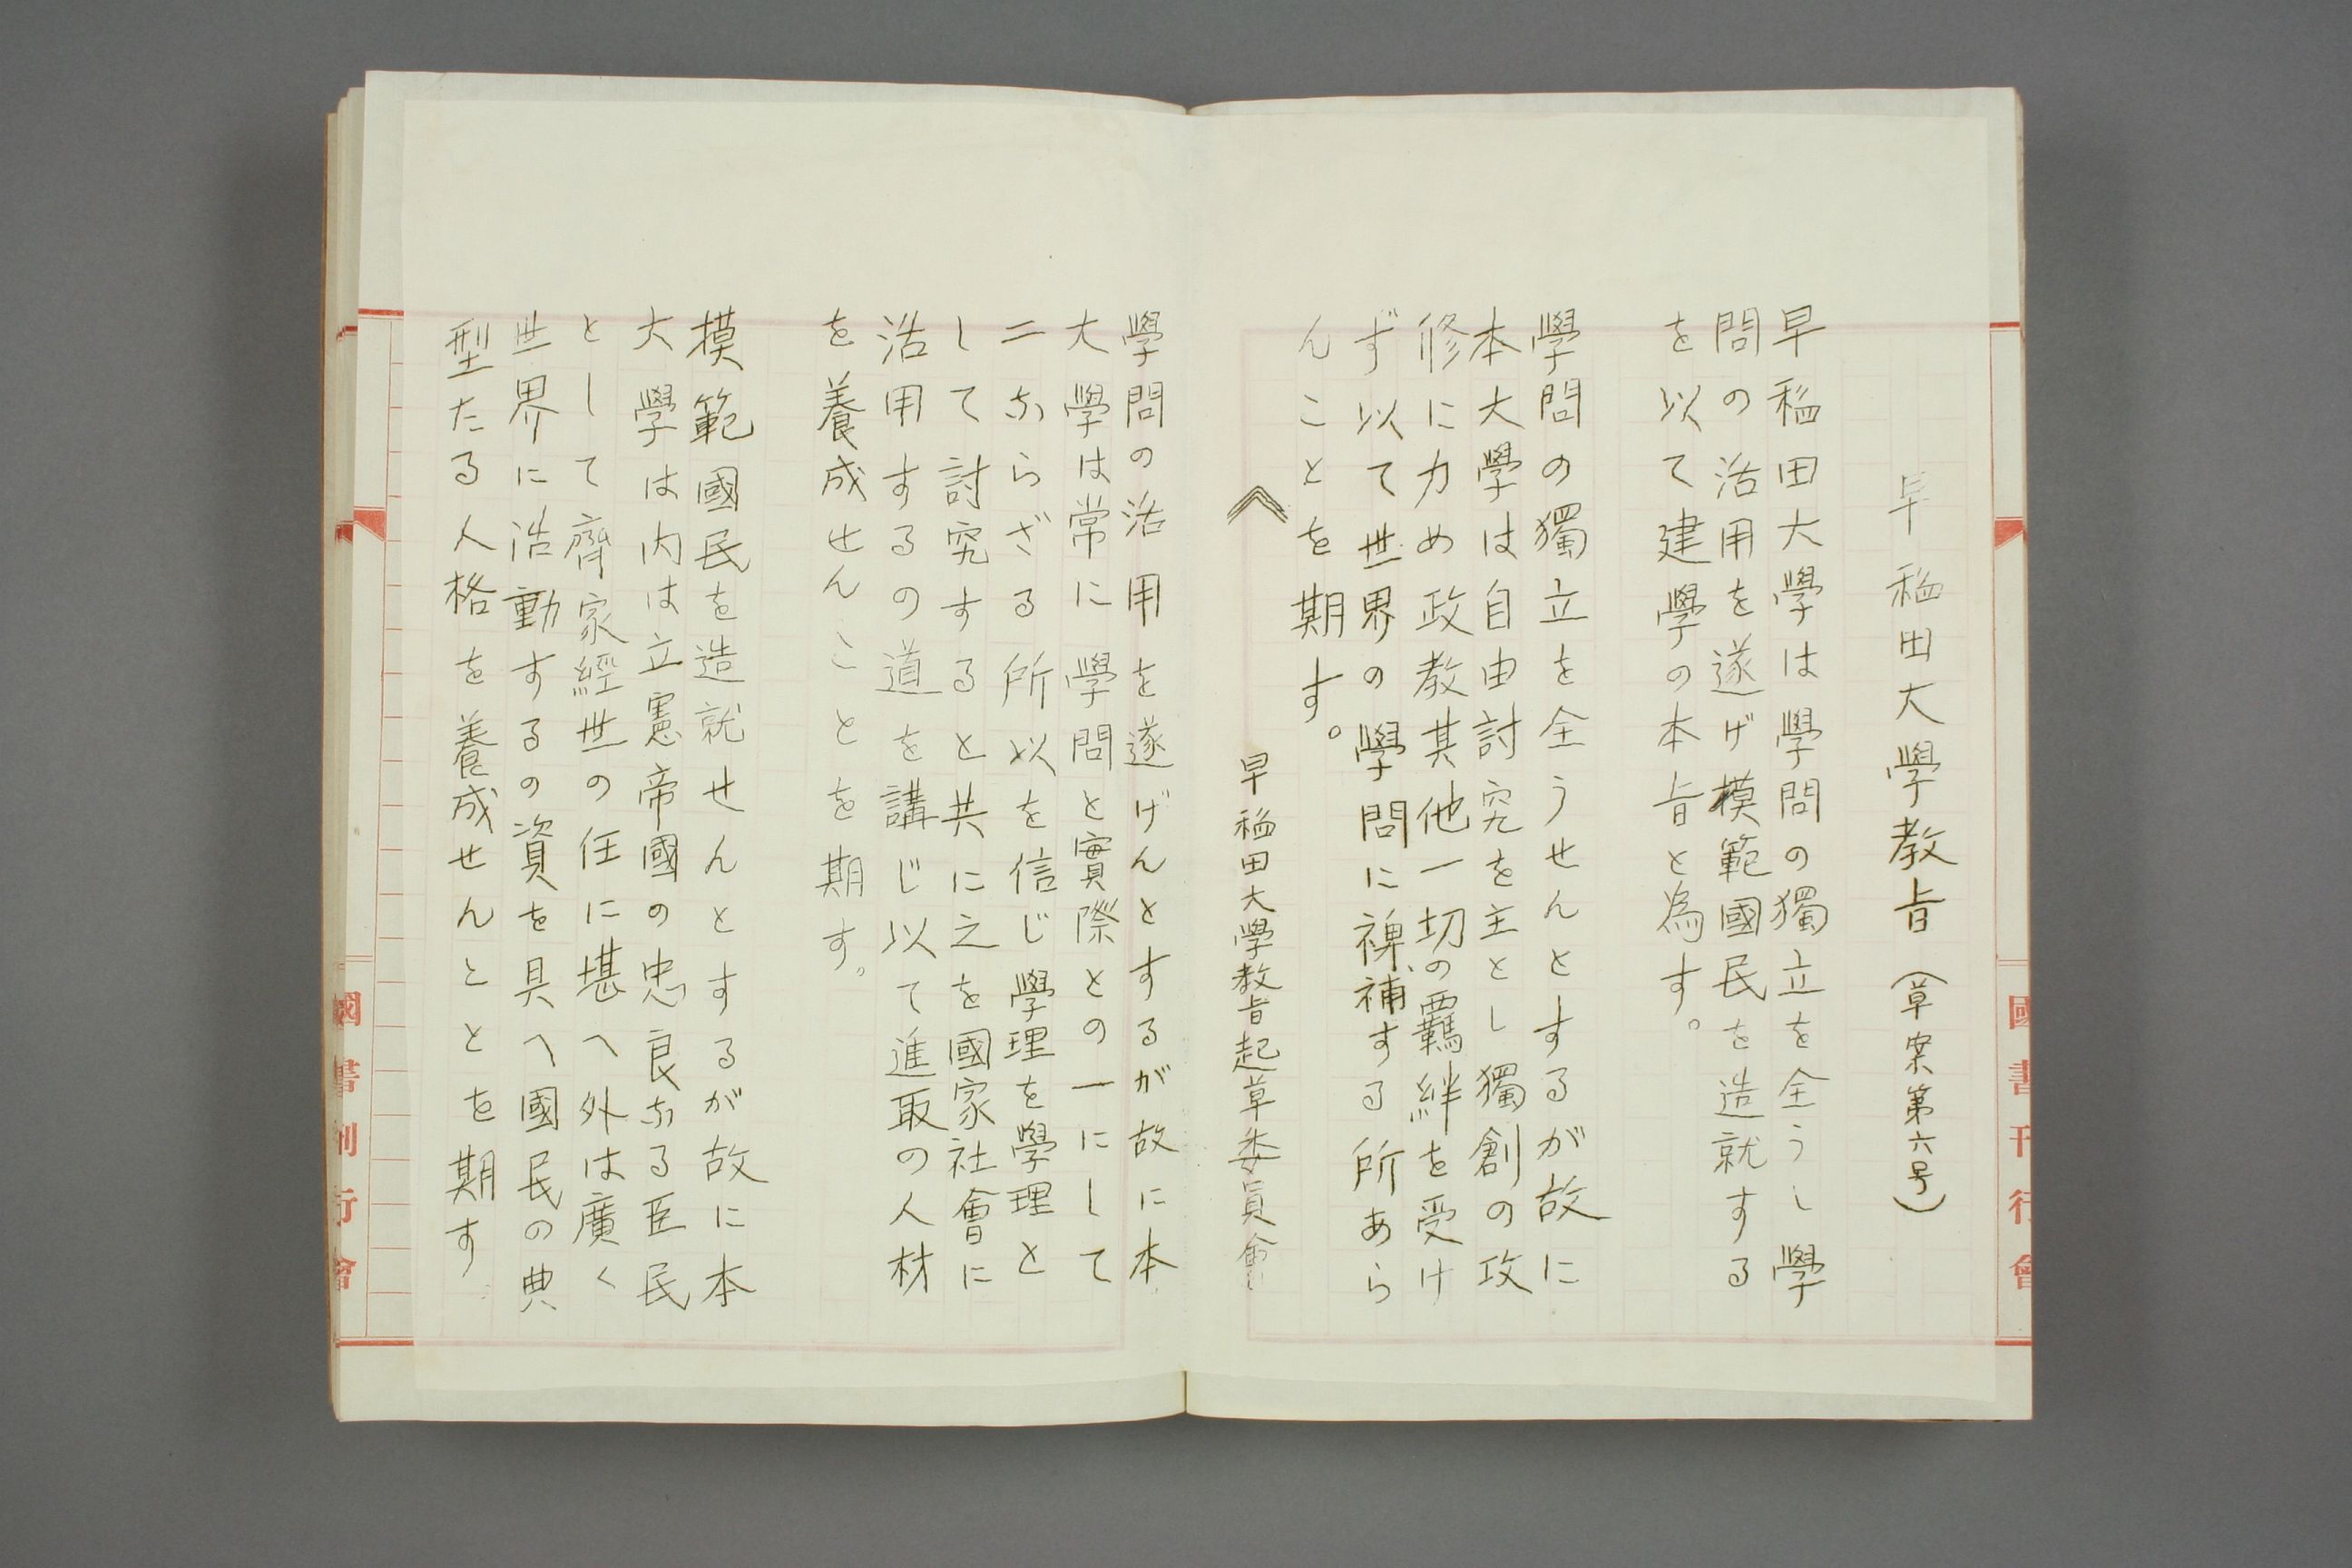 早稲田大學教旨（草案第六号）
早稲田大學は學問の獨立を全うし學
問の活用を遂げ模範國民を造就する
を以て建學の本旨と為す。
學問の獨立を全うせんとするが故に
本大學は自由討究を主とし獨創の攻
修に力め政教其他一切の羈絆を受け
ず以て世界の學問に裨補する所あら
んことを期す。
早稲田大學教旨起草委員會
學問の活用を遂げんとするが故に本
大學は常に學問と實際との一にして
二ならざる所以を信じ學理を學理と
して討究すると共に之を國家社會に
活用するの道を講じ以て進取の人材
を養成せんことを期す。
模範國民を造就せんとするが故に本
大學は内は立憲帝國の忠良なる臣民
として齊家經世の任に堪へ外は廣く
世界に活動するの資を具へ國民の典
型たる人格を養成せんことを期す
國書刊行會
國書刊行會